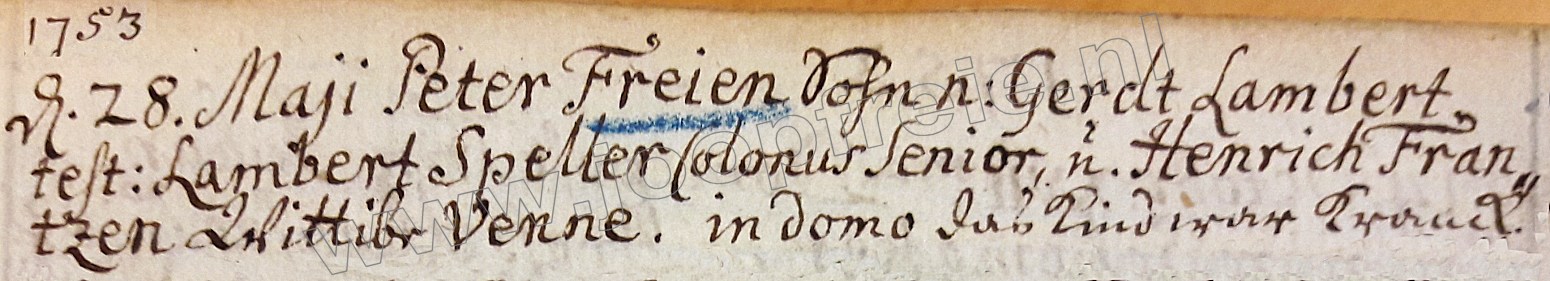 1753
d. 28. Maji Peter Freien Sohn n: Gerdt Lambert
test: Lambert Speller Colonus Senior, ŭ. Henrich Fran„
tzen Wittibe Venne. in domo das Kind war Kranck.
www.joopfreie.nl